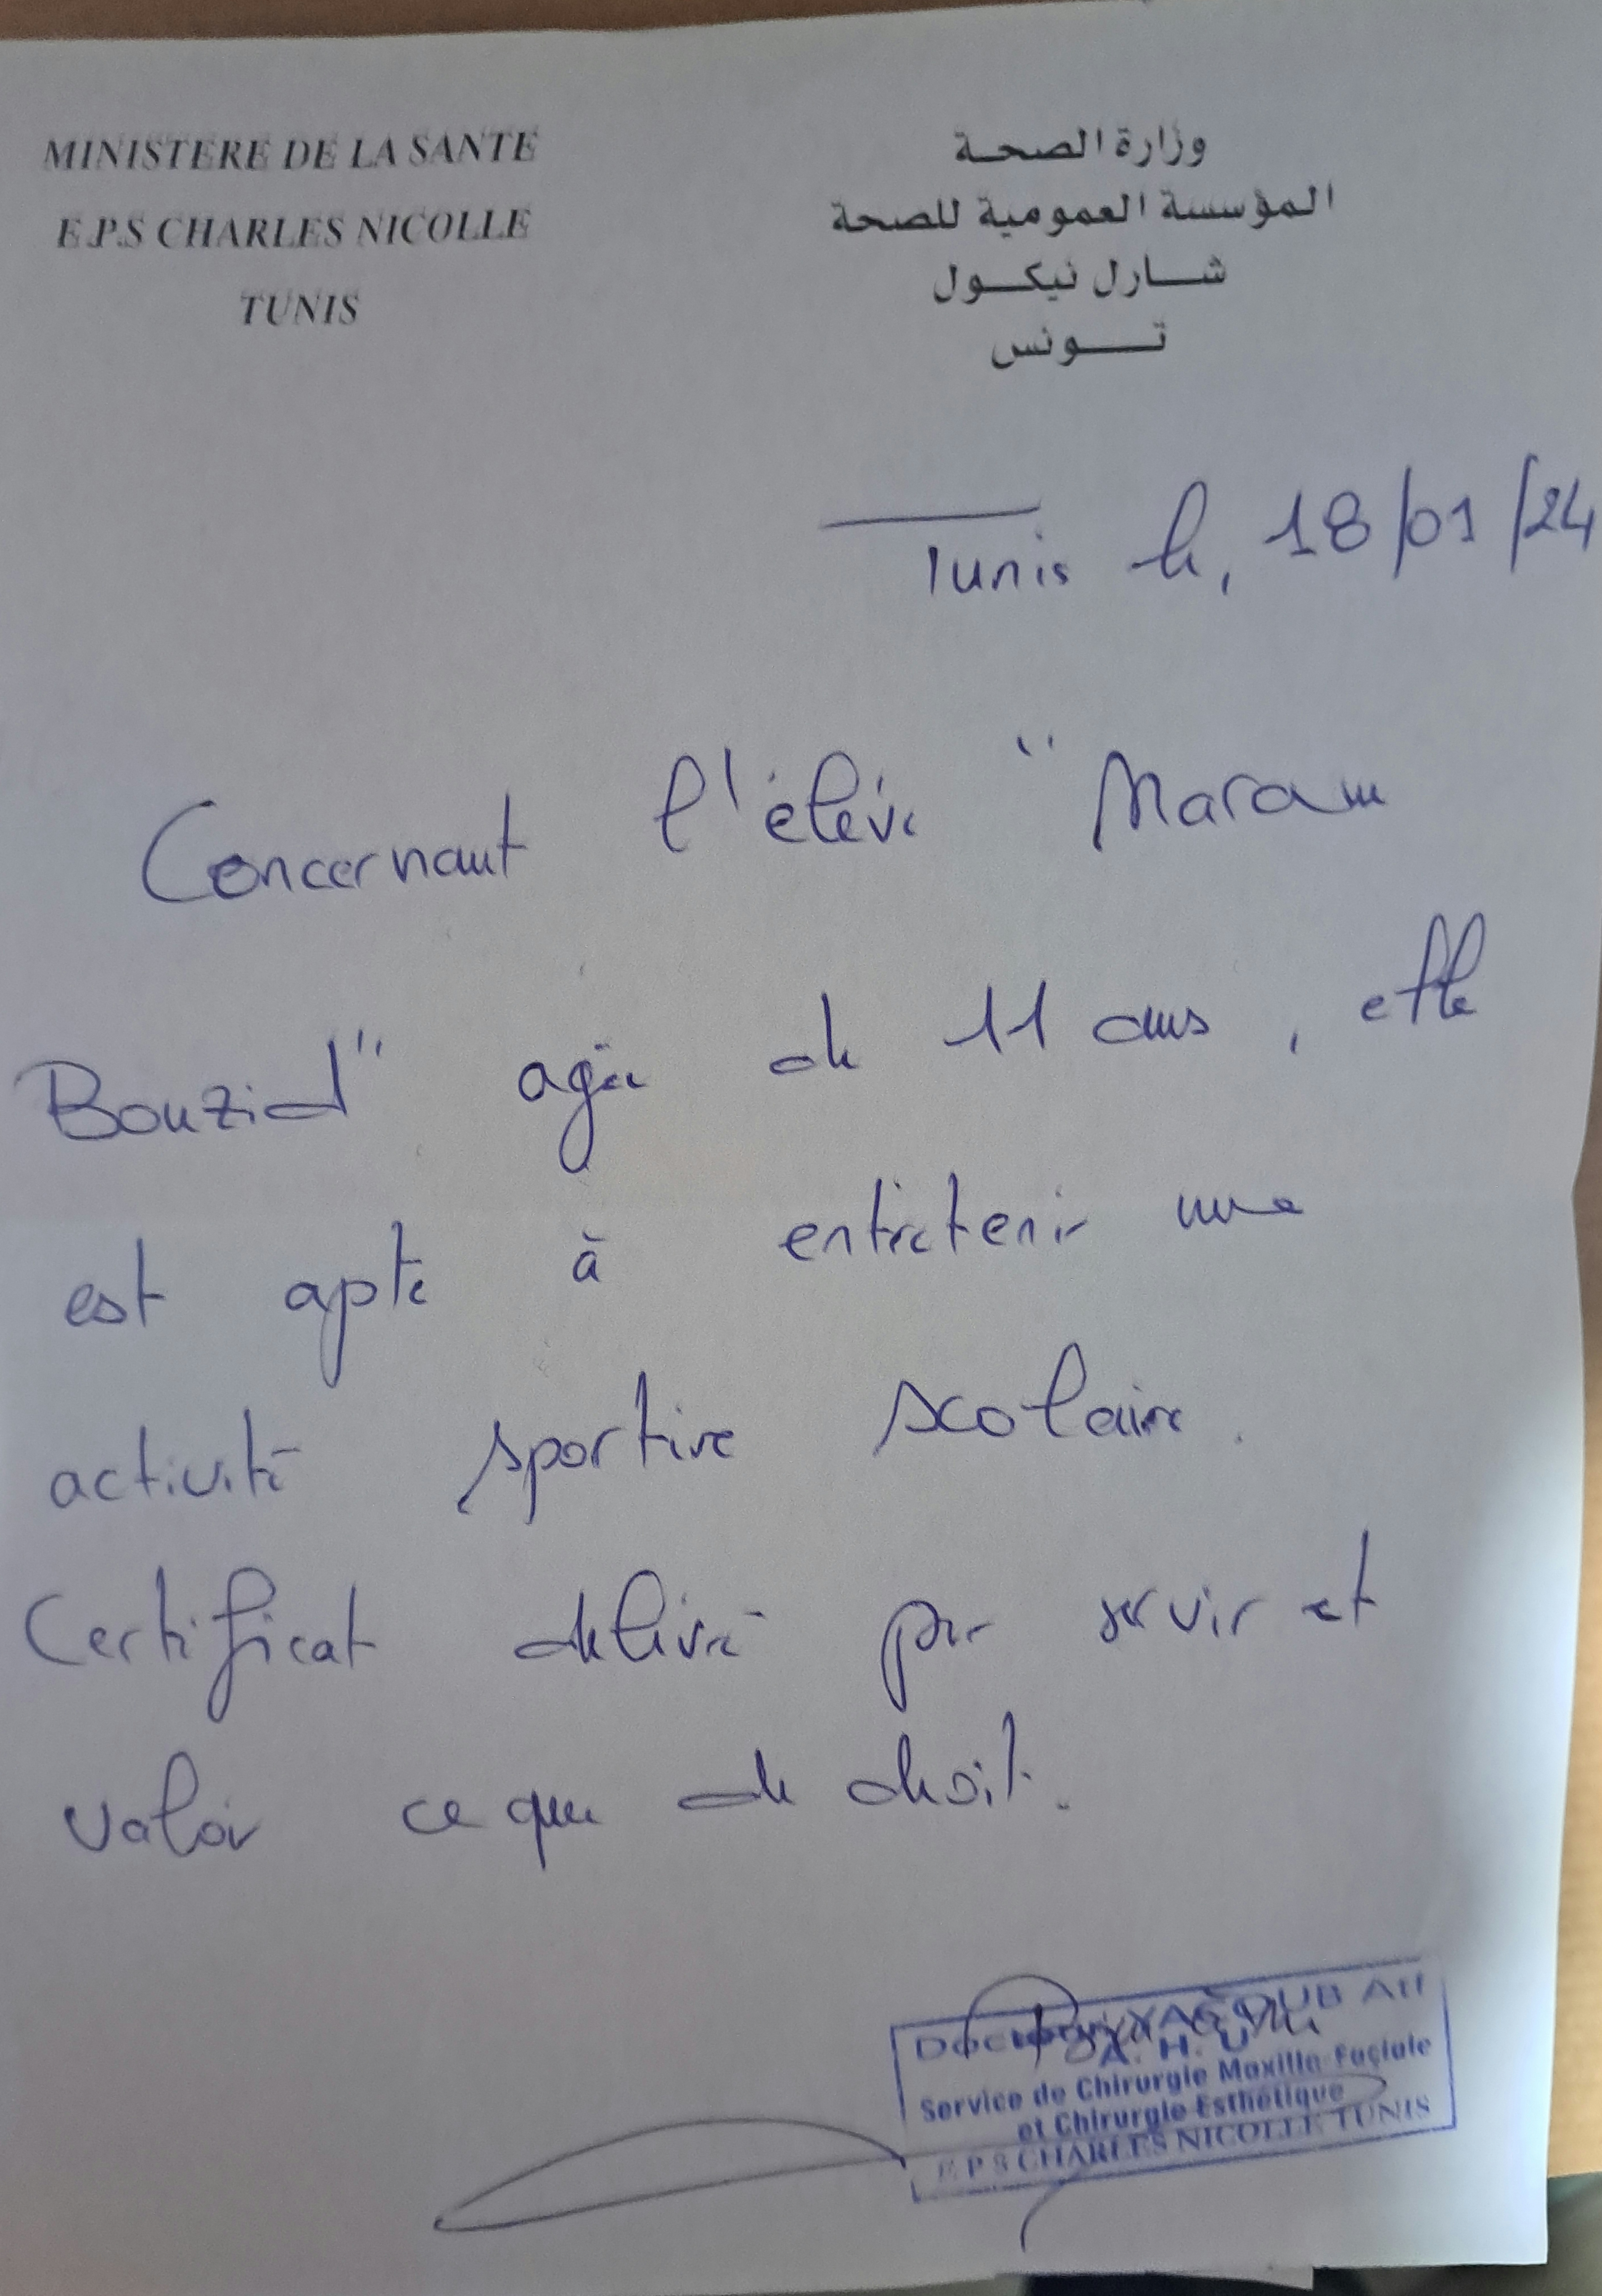 MINISTERE DE LA SANTE
E.P.S CHARLES NICOLLE
TUNIS
وزارة الصحة
المؤسسة العمومية للصحة
شارل نيكول
تونس
Tunis le, 18/01/24
Concernant l'élève "Maram
Bouzid" agée de 11 ans, elle
est apte à entretenir une
activité sportive scolaire.
Certificat delivré pour servir et
valoir ce que de droit.
Docteur YACOUB
A. H. U
Service de Chirurgie Maxillo-Faciale
et Chirurgie Esthétique
E P S CHARLES NICOLLE TUNIS